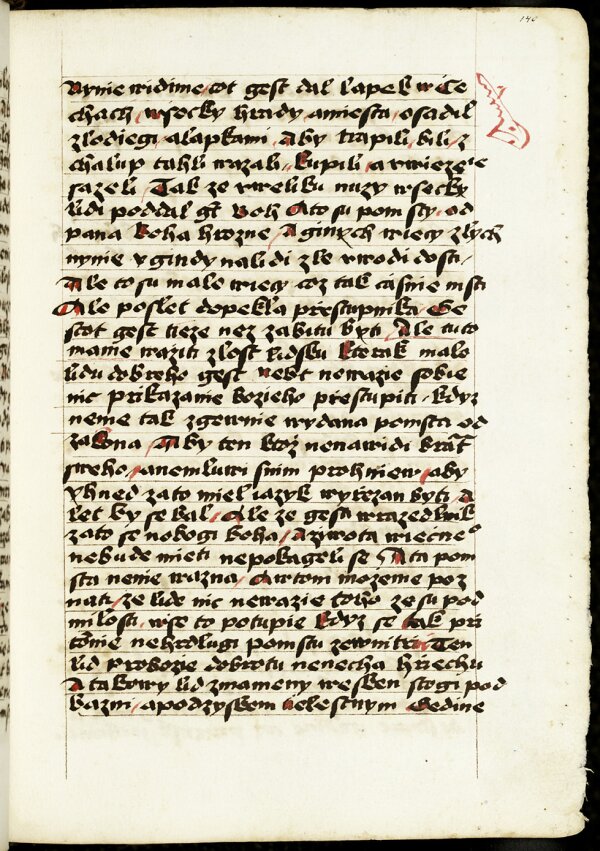 140
nynie widime / tot gest dal lapek w Cze
chach / wsecky hrady / amiesta / osadil
zlodiegi / alapkami / Aby trapili / bili / z
chalup tahli wazali / kupili / a wwieze^ie
sazeli / Tak ze wweliku nuzy wsecky
lidi poddal gt Boh / Ato su pomsty / od
pana Boha hrozne / A ginych wiecy zlych
nynie y gindy nalidi zle wwodi dosti /
Ale to su male wiecy coz tak casnie msti
Ale poslet dopekla prestupnika / Ge
stot gest tieze nez zabitu byti / Ale tuto
mame waziti zlost lidsku kterak malo
lidu dobreho gest / nebt newazie sobie
nic prikazanie bozieho prestupiti / kdyz
neme tak zgewnie wydana pomsta od
zakona / Aby ten ktoz nenawidi bratr
sweho / anemluwi snim prohniew / aby
yhned zato miel iazyk wyrzezan byti / A
let by se bal / Ale ze gest wrazedlnik
zato se nebogi boha / Aziwota wiecne^o
nebude mieti nepokageli se / Ata pom
sta nenie wazna / Awtom mozeme poz
nati / ze lide nic newazie toho ze su pod
milosti / wse to potupie kdyz se tak pri
tomie nehrdlugi pomstu zewnitrni / Ten
lid probozie dobrotu nenecha hriechu
A takowy lid znameny wesken stogi pod
bazni / apodzyskem telestnym Gedine